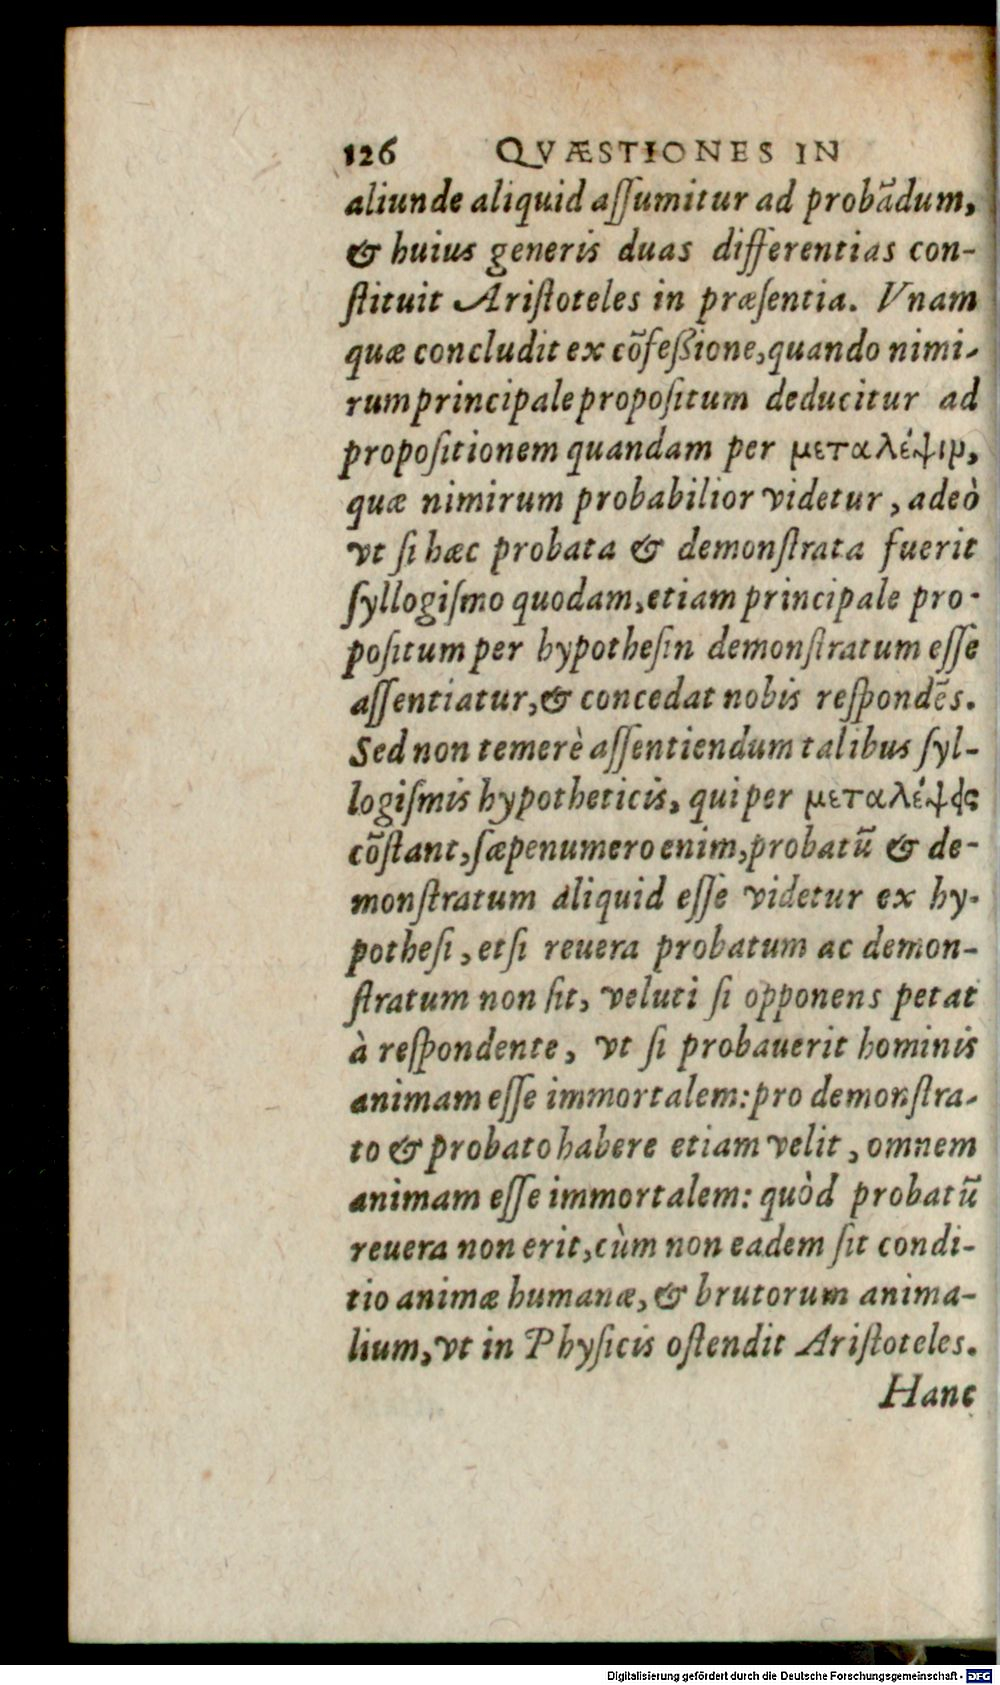 126 QVÆSTIONES IN
aliunde aliquid aſſumitur ad probādum,
& huius generis duas differentias con-
ſtituit Ariſtoteles in præſentia. Vnam
quæ concludit ex cōfeßione, quando nimi-
rum principale propoſitum deducitur ad
propoſitionem quandam per μεταλέψιν,
quæ nimirum probabilior videtur, adeò
vt ſi hæc probata & demonſtrata fuerit
ſyllogiſmo quodam, etiam principale pro-
poſitum per hypotheſin demonſtratum eſſe
aſſentiatur, & concedat nobis reſpondēs.
Sed non temerè aſſentiendum talibus ſyl-
logiſmis hypotheticis, qui per μεταλέψεις
cōſtant, ſæpenumero enim, probatū & de-
monſtratum aliquid eſſe videtur ex hy-
potheſi, etſi reuera probatum ac demon-
ſtratum non ſit, veluti ſi opponens petat
à reſpondente, vt ſi probauerit hominis
animam eſſe immortalem: pro demonſtra-
to & probato habere etiam velit, omnem
animam eſſe immortalem: quòd probatū
reuera non erit, cùm non eadem ſit condi-
tio animæ humanæ, & brutorum anima-
lium, vt in Phyſicis oſtendit Ariſtoteles.
Hanc
Digitalisierung gefördert durch die Deutsche Forschungsgemeinschaft - DFG